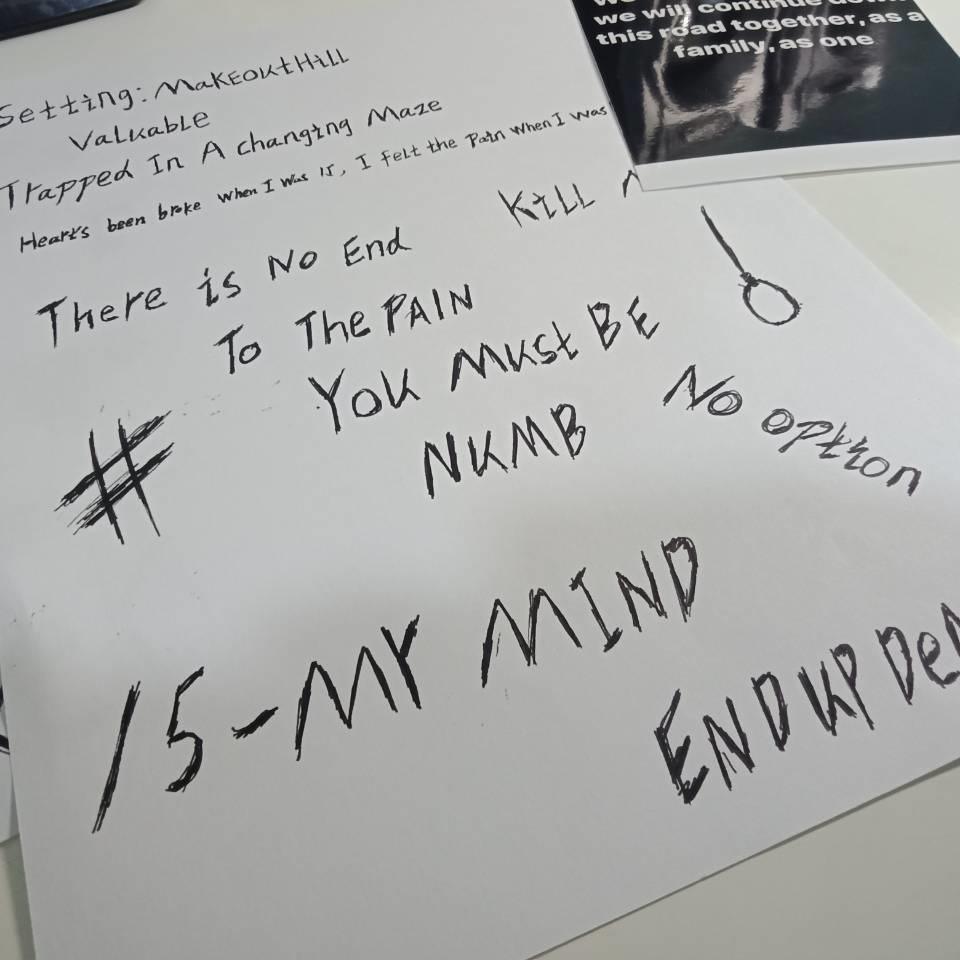 we will continue
this road together, as a
family, as one
Setting: MakeoutHill
Valuable
Trapped In A changing Maze
Heart's been broke when I was 15, I felt the Pain when I was
Kill
There is No End
To The PAIN
You Must BE
NUMB
No option
#
15-MY MIND
END UP